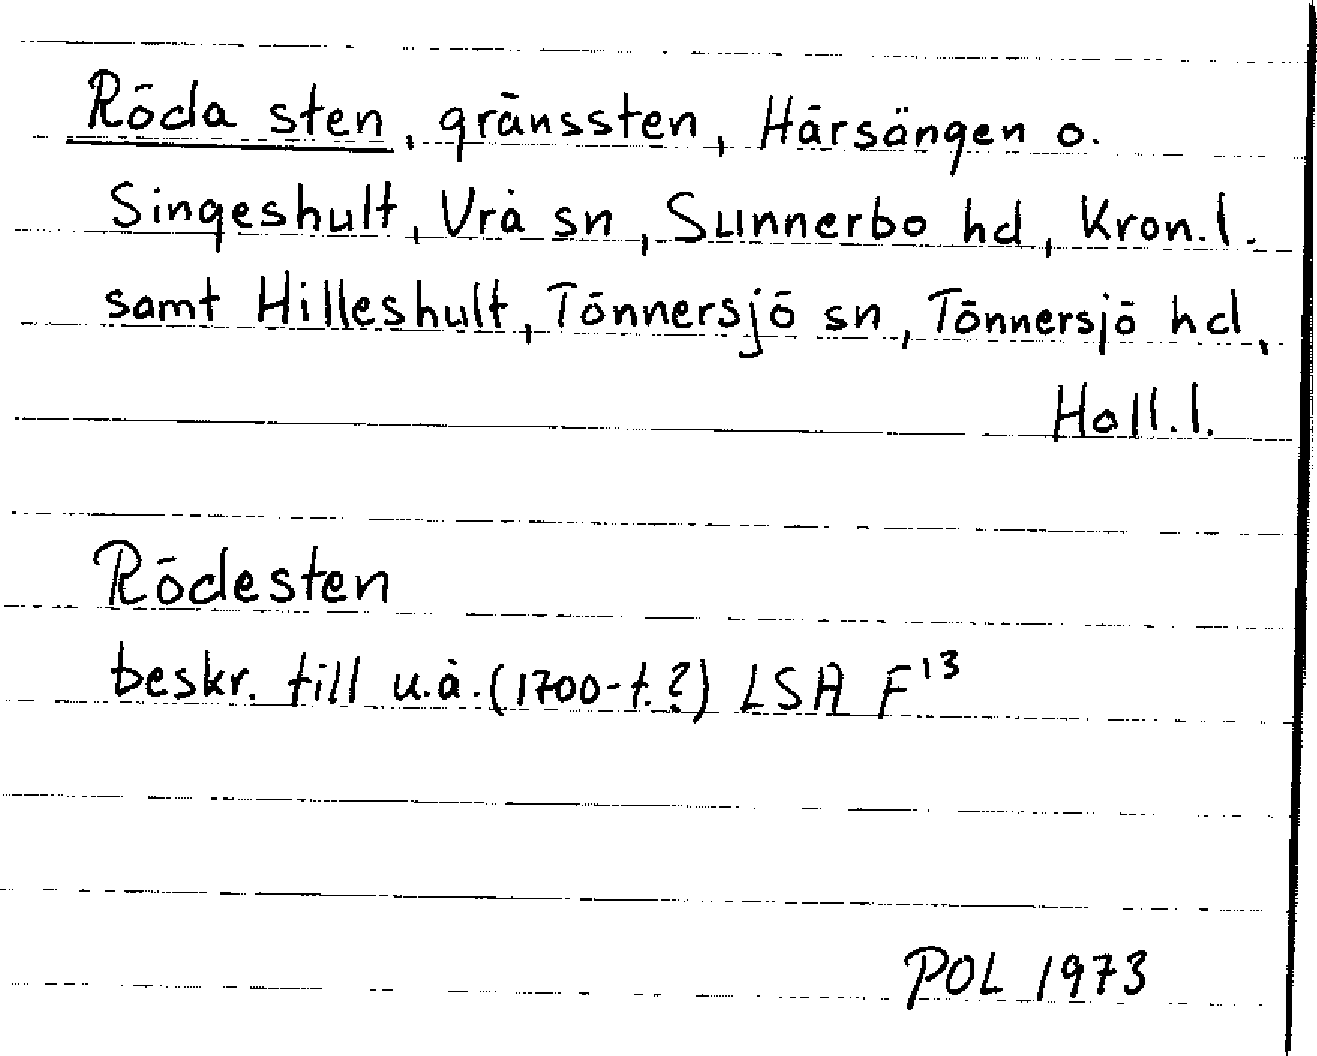 Röda sten, gränssten, Härsängen o.
Singeshult, Vrå sn, Sunnerbo hd, Kron.l.
samt Hilleshult, Tönnersjö sn, Tönnersjö hd,
Hall.l.
Rödesten
beskr. till u.å. (1700-t.?) LSA F¹³
POL 1973